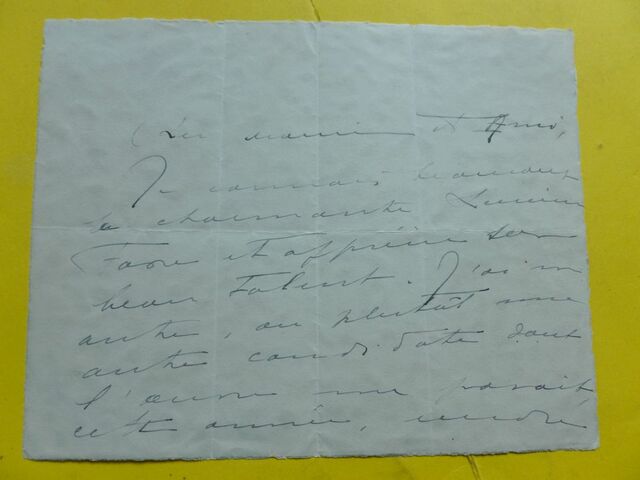 et Ami,
Je connais beaucoup
la charmante Lucien
Favre et apprécie son
beau talent. J'ai un
autre, ou plutôt une
autre candidate dont
l'œuvre me parait,
cette année,